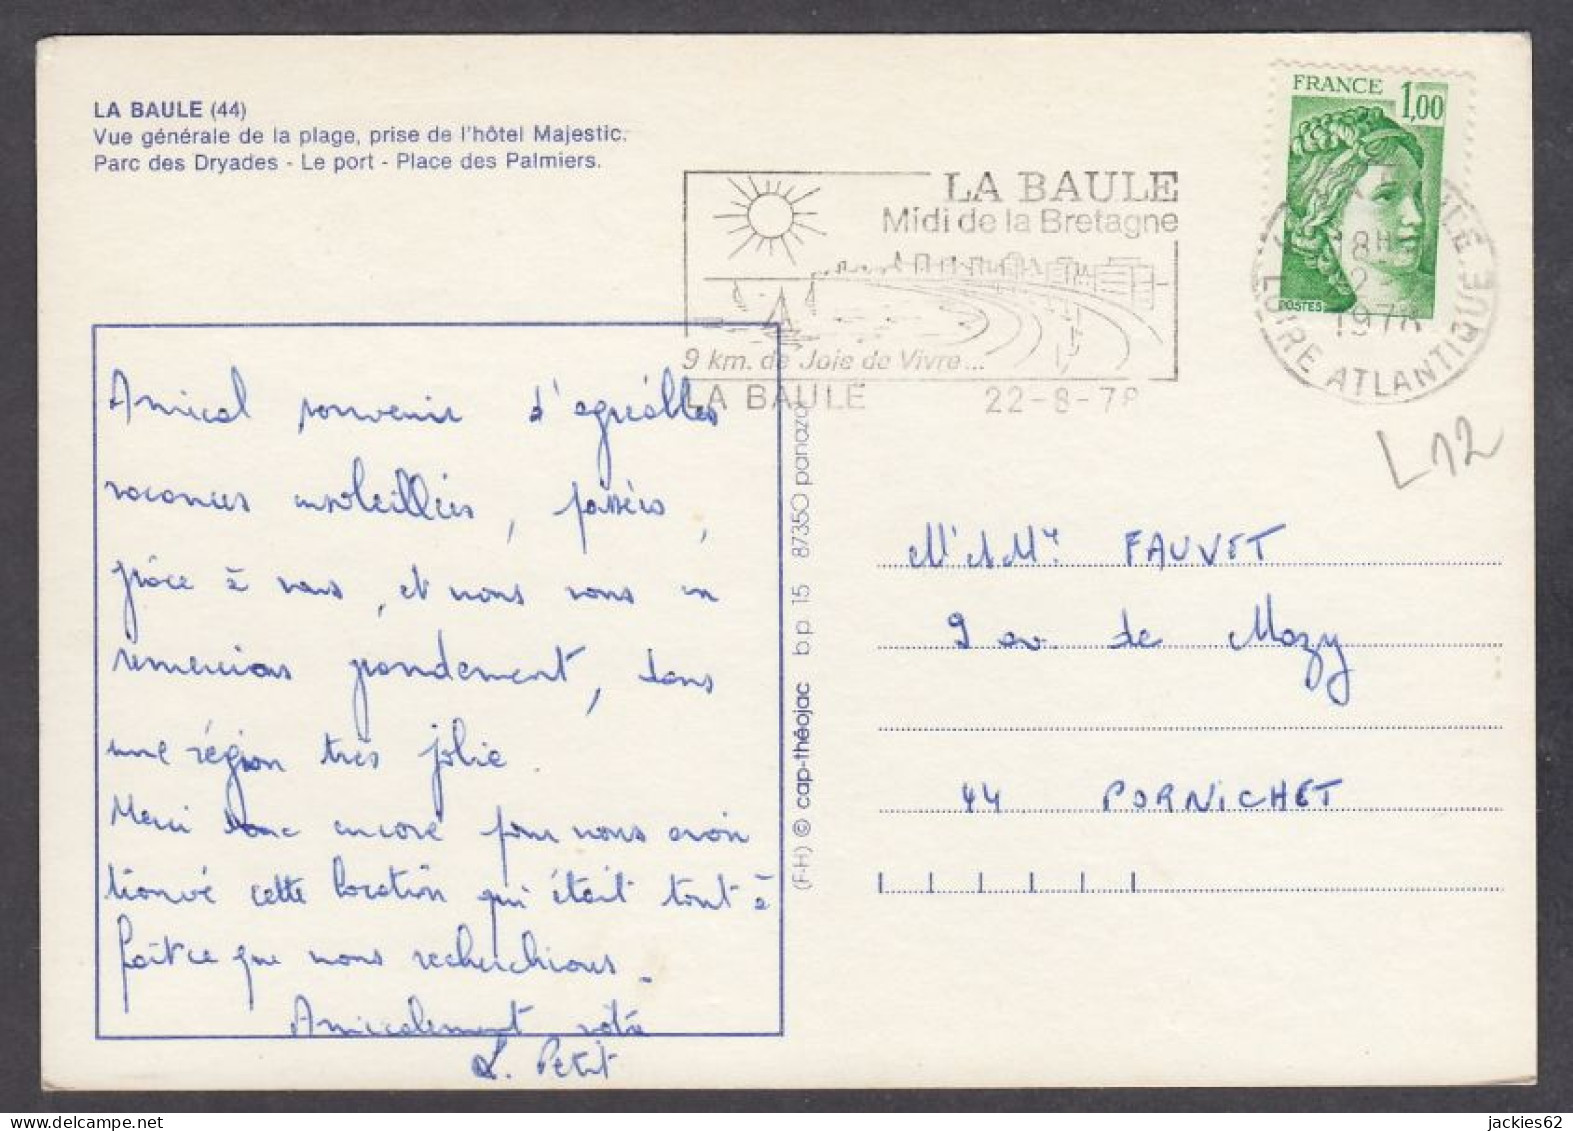 LA BAULE (44)
Vue générale de la plage, prise de l'hôtel Majestic.
Parc des Dryades - Le port - Place des Palmiers.
FRANCE 1,00
POSTES
LA BAULE
Midi de la Bretagne
9 km. de Joie de Vivre...
LA BAULE 22-8-78
18H
1978
LOIRE ATLANTIQUE
L12
Amical souvenir d'agréables
vacances ensoleillées, passées,
grâce à vous, et nous vous en
remercions grandement, dans
une région très jolie.
Merci donc encore pour nous avoir
trouvé cette location qui était tout à
fait ce que nous recherchions.
Amicalement votre
L. Petit
(F-H) © cap-théojac bp 15 87350 panazol
Mr & Mme FAUVET
9 av. de Mazy
44 PORNICHET
jackies62